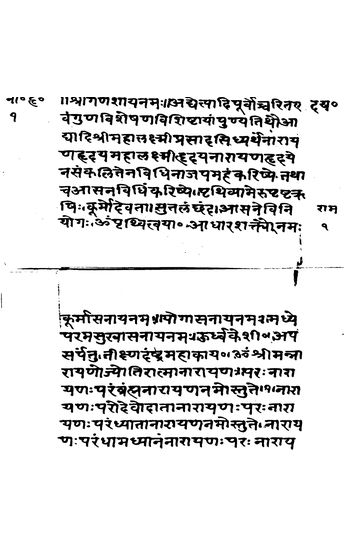 ना०हृ० ॥श्रीगणेशायनमः॥अद्येत्यादिपूर्वोच्चरितए हृद्य०
१ वंगुणविशेषणविशिष्टायांपुण्यतिथौआ
द्यादिश्रीमहालक्ष्मीप्रसादसिध्यर्थेनाराय
णहृदयमहालक्ष्मीहृदयनारायणहृदये
नसंकलितेनविधिनाजपमहंकरिष्ये॰तथा
चआसनविधिंकरिष्ये॥पृथिव्यामेरुपृष्टऋ
षिः॰कूर्मोदेवता॥सुतलंछंदः॥आसनेविनि राम
योगः॰ॐपृथ्वित्वया०॰आधारशक्त्येनमः १
कूर्मासनायनमः॥योगासनायनमः॥मध्ये
परमसुखासनायनमः॥ऊर्ध्वकेशी०॰अप
सर्पंतु॰तीक्ष्णदंष्ट्रमहाकाय०॰ॐश्रीमन्ना
रायणोज्योतिरात्मानारायणः॥परः॰नारा
यणःपरंब्रह्मनारायणनमोस्तुते॥१॥नारा
यणःपरोदेवोदातानारायणःपरः॰नारा
यणःपरंध्यातानारायणनमोस्तुते॥नाराय
णःपरंधामध्यानंनारायणःपरः॰नाराय